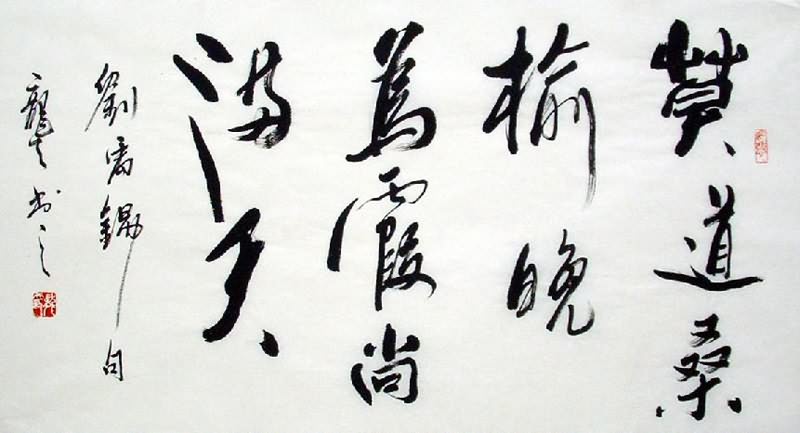 莫道桑
榆晚
為霞尚
滿天
劉禹錫句
書之